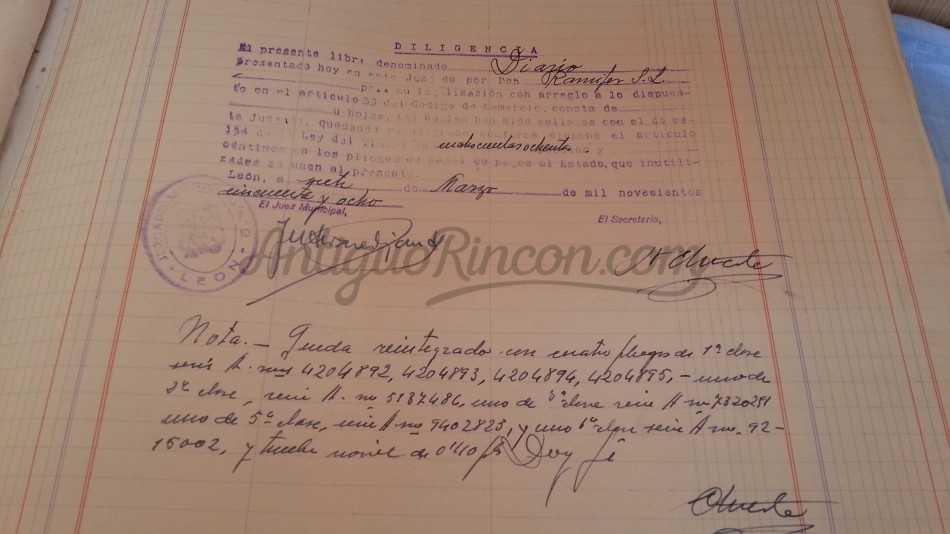 DILIGENCIA
El presente libro denominado Diario
Presentado hoy en este Juzgado por Don Ramifer S.L.
para su legalización con arreglo a lo dispues-
to en el artículo 33 del Código de Comercio, consta de
hojas, las cuales han sido selladas con el de es-
te Juzgado, quedando el artículo
154 de la Ley del cuatrocientas ochenta
céntimos en los pliegos de papel de pagos al Estado, que inutili-
zados se unen al presente.
León, a de Marzo de mil novecientos
cincuenta y ocho
El Juez Municipal,
El Secretario,
LEON
AntiguoRincon.com
Nota.- Queda reintegrado con cuatro pliegos de 1ª clase
serie A. nos 4204892, 4204893, 4204894, 4204895, - uno de
2ª clase, serie A. nº 5137486, uno de clase serie A nº 7320251
uno de 5ª clase, serie A nº 9402823, y uno 6ª clase serie A no. 92-
15002, y timbre móvil de 0'10 pts Doy fe